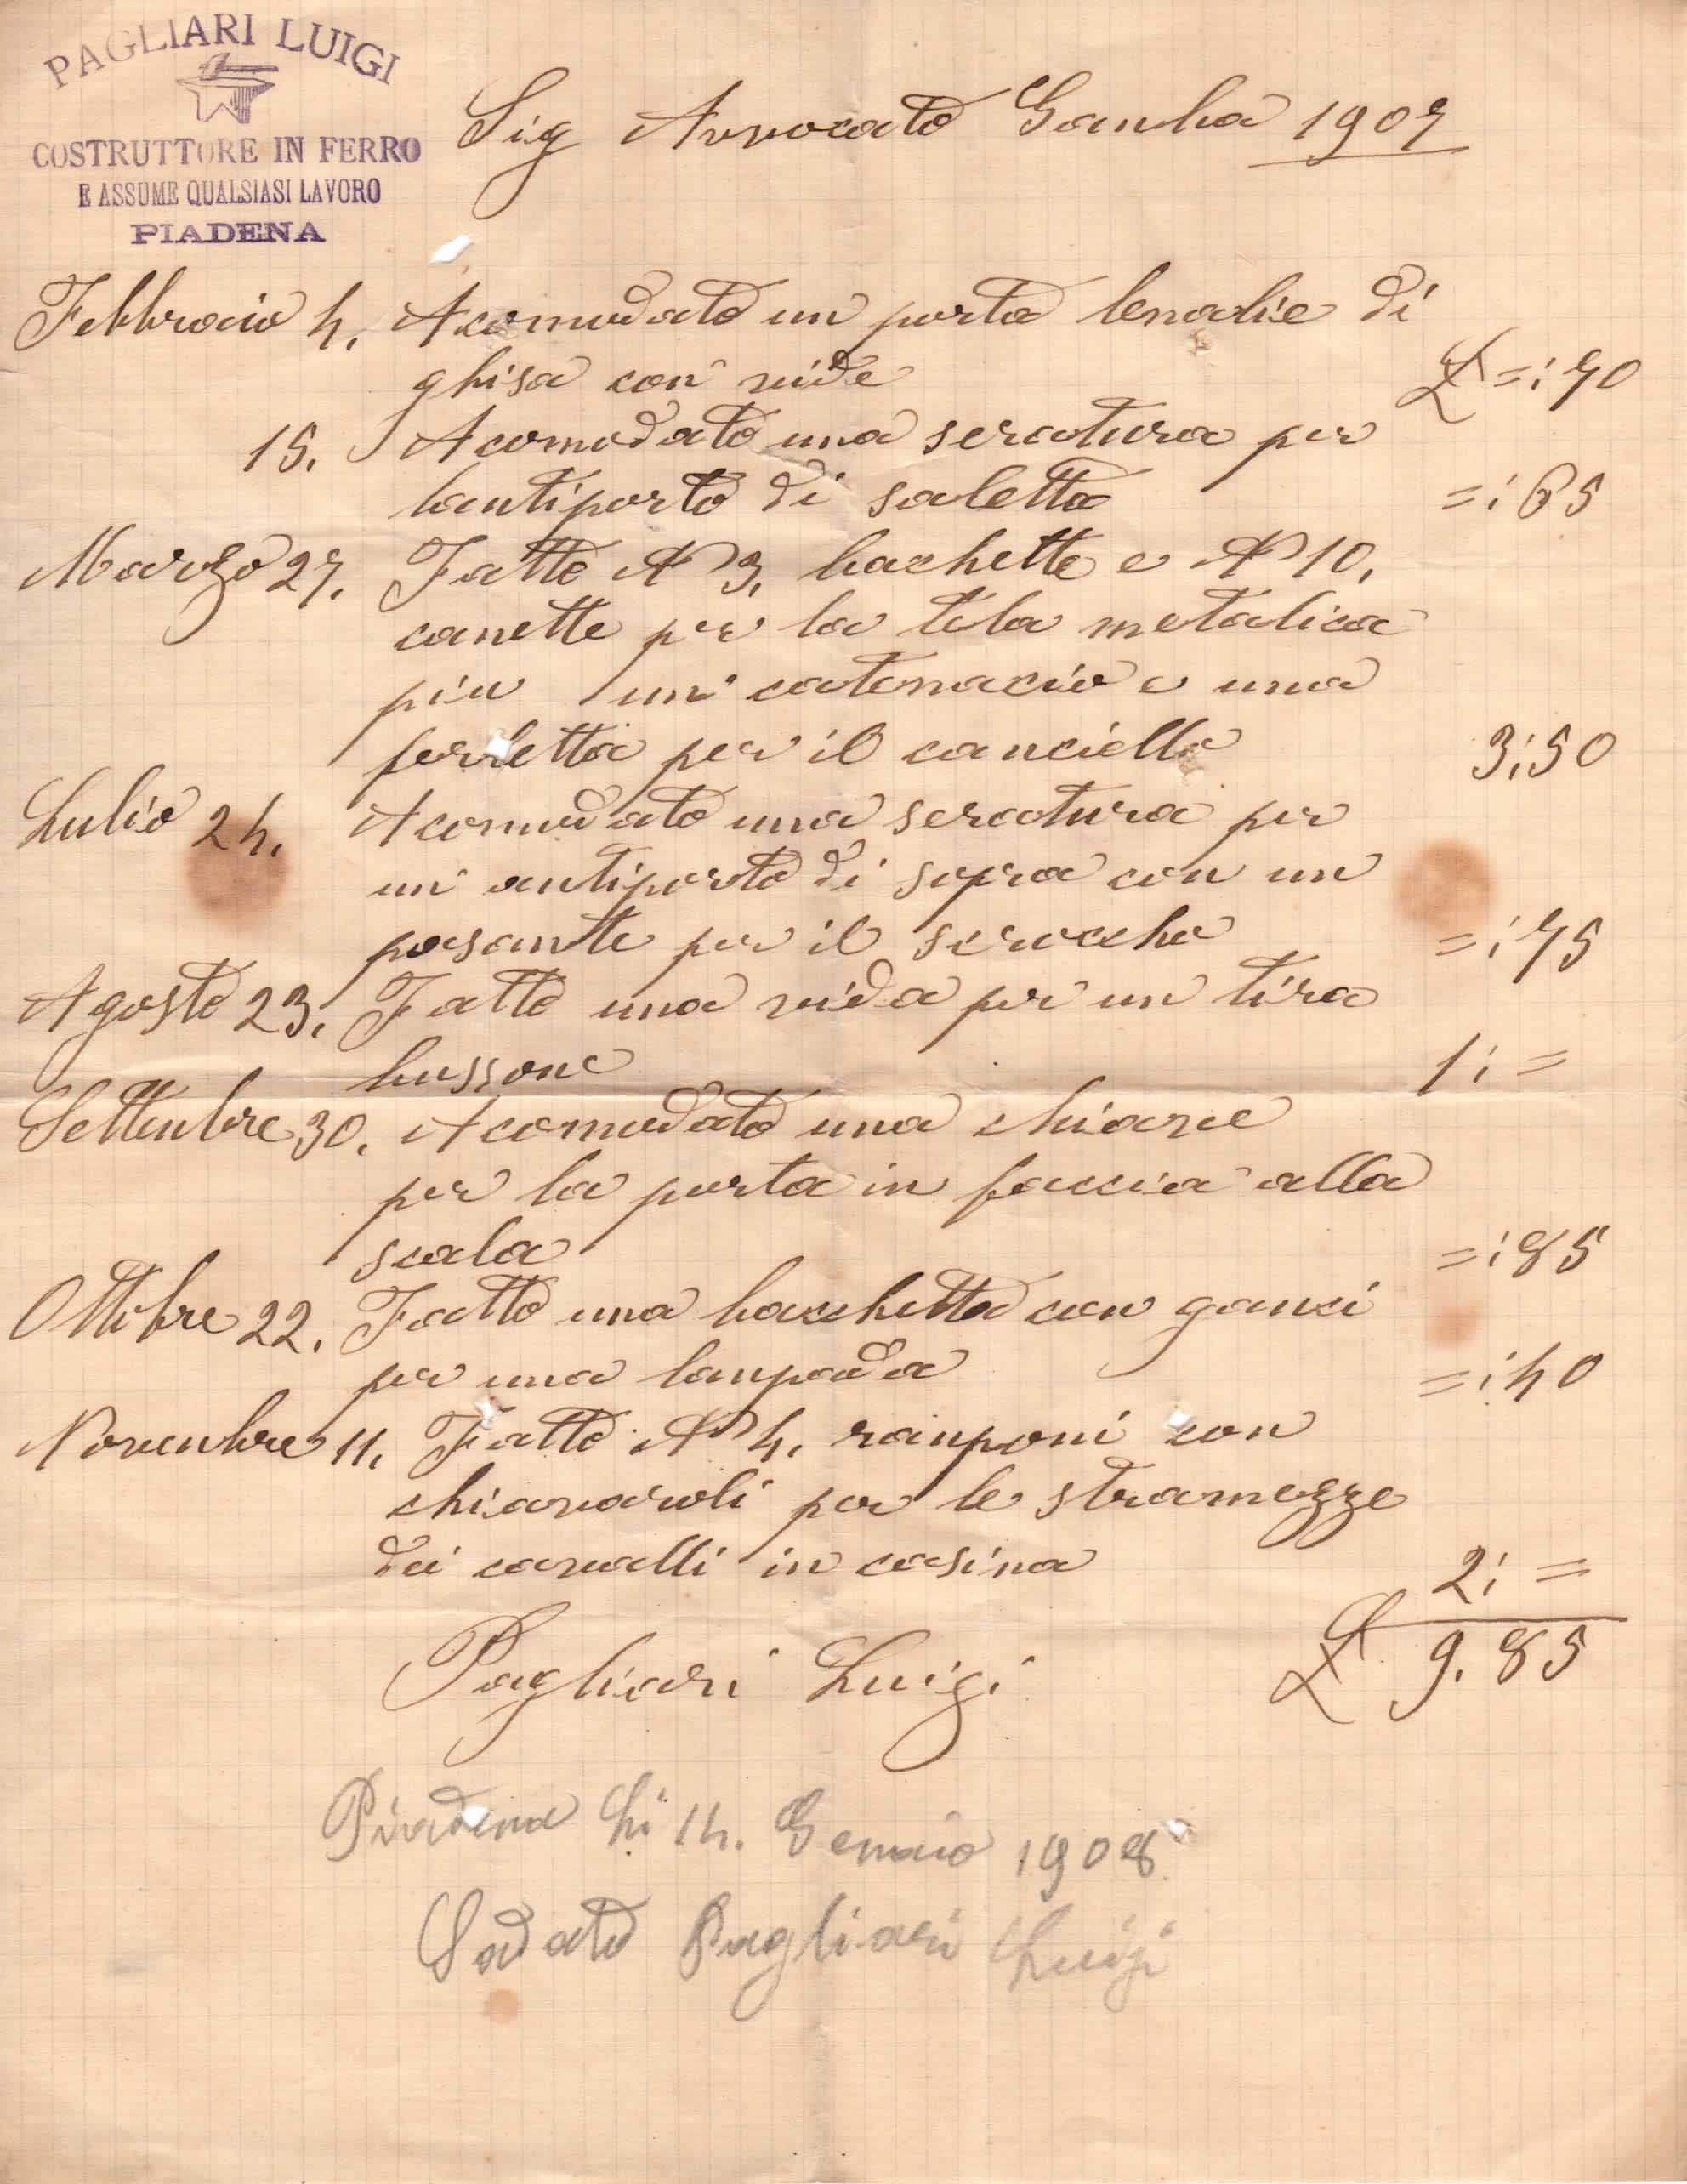 PAGLIARI LUIGI
COSTRUTTORE IN FERRO
E ASSUME QUALSIASI LAVORO
PIADENA
Sig Avvocato Gamba 1907
Febbraio 4. Acomodato un porta lenalie di
ghisa con vide £ =;70
15. Acomodato una seratura per
lantiporto di saletta =;65
Marzo 27. Fatto N 3, bachette e N 10,
canette per la tela metalica
piu un catenacio e una
ferletta per il canciello 3;50
Lulio 24. Acomodato una seratura per
un antiporto di sopra con un
posante per il scroccho =;75
Agosto 23. Fatto una vida per un tira
bussone 1; =
Settenbre 30. Acomodato una chiave
per la porta in faccia alla
scala =;85
Ottobre 22. Fatto una bacchetta con ganci
per una lanpada =;40
Novenbre 11. Fatto N 4. ranponi con
chiavaroli per le stramezze
dei cavalli in casina 2; =
Pagliari Luigi £ 9.85
Piadena li 14. Genaio 1908
Sodato Pagliari Luigi